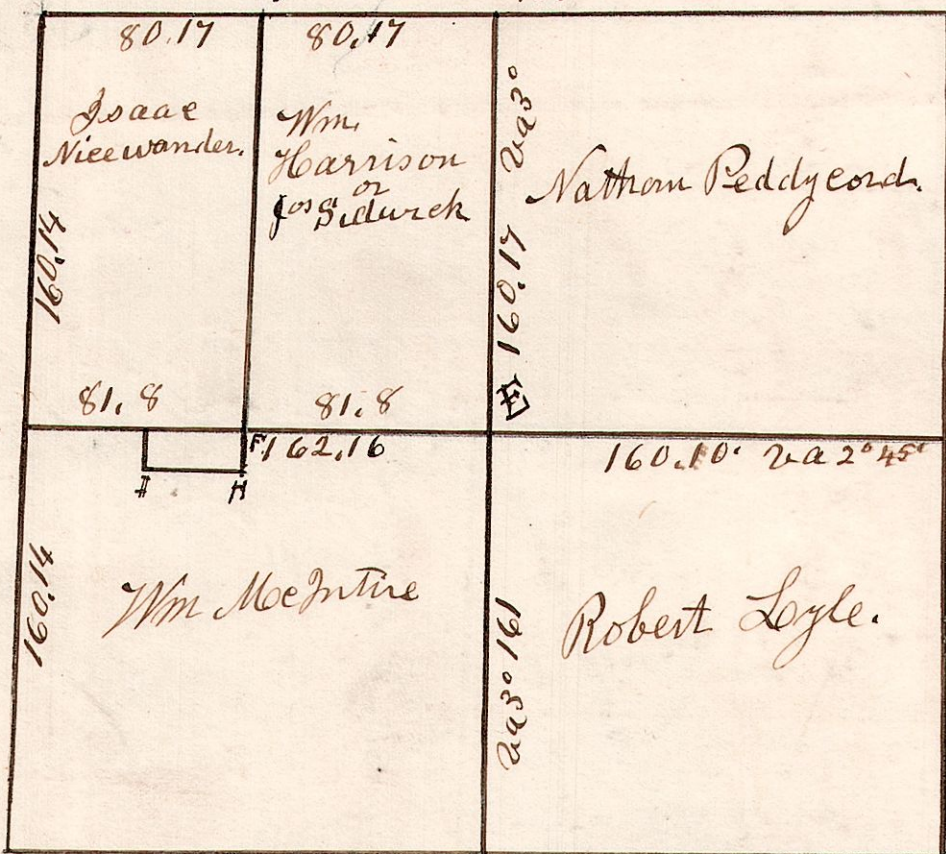 80.17
80.17
Isaac
Nicewander.
Wm.
Harrison
or
Jos Sidwick
Va 3°
160.17
E
Nathom Peddycord.
160.14
81.8
81.8
F
162.16
160.10. Va 2° 45'
H
160.14
Wm McIntire
Va 3° 161
Robert Lyle.